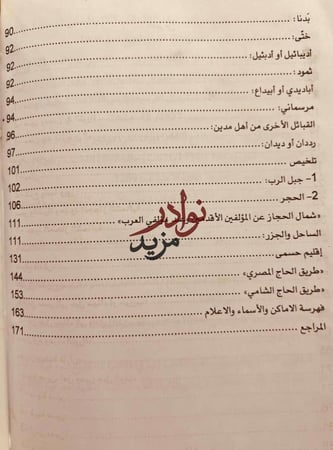 بدنا: 90
ختّى: 92
أدبيائيل أو أدبئيل: 92
ثمود: 92
أباديدي أو أبيداع: 94
مرسماني: 94
القبائل الأخرى من أهل مدين: 96
رددان أو ديدان: 97
تلخيص 101
1- جبل الرب: 102
2- الحجر 106
«شمال الحجاز عن المؤلفين العرب» 111
الساحل والجزر: 111
إقليم حسمى 131
«طريق الحاج المصري» 144
«طريق الحاج الشامي» 153
فهرسة الاماكن والأسماء والاعلام 163
المراجع 171
نوادر
مزيد